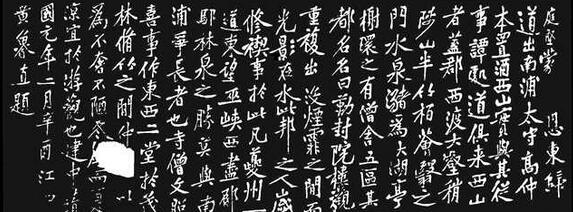 庭堅蒙 恩東歸
道出南浦太守高仲
本置酒西山實與其從
事譚處道俱来西山
者蓋郡西渡大壑稍
陟山半竹栢薈翳之
門水泉瀦為大湖亭
榭環之有僧舍五區其
都名名曰勅封院樓觀
重複出没煙霏之間而
光影在水此邦之人歲
修禊事於此凡夔州一
道東望巫峡西盡郁
鄢林泉之勝莫與南
浦爭長者也寺僧文照
喜事作東西二堂於茂
林脩竹之間仲以
為不奢不陋冬而夏
涼宜於遊觀也建中靖
國元年二月辛酉江
黄魯直題